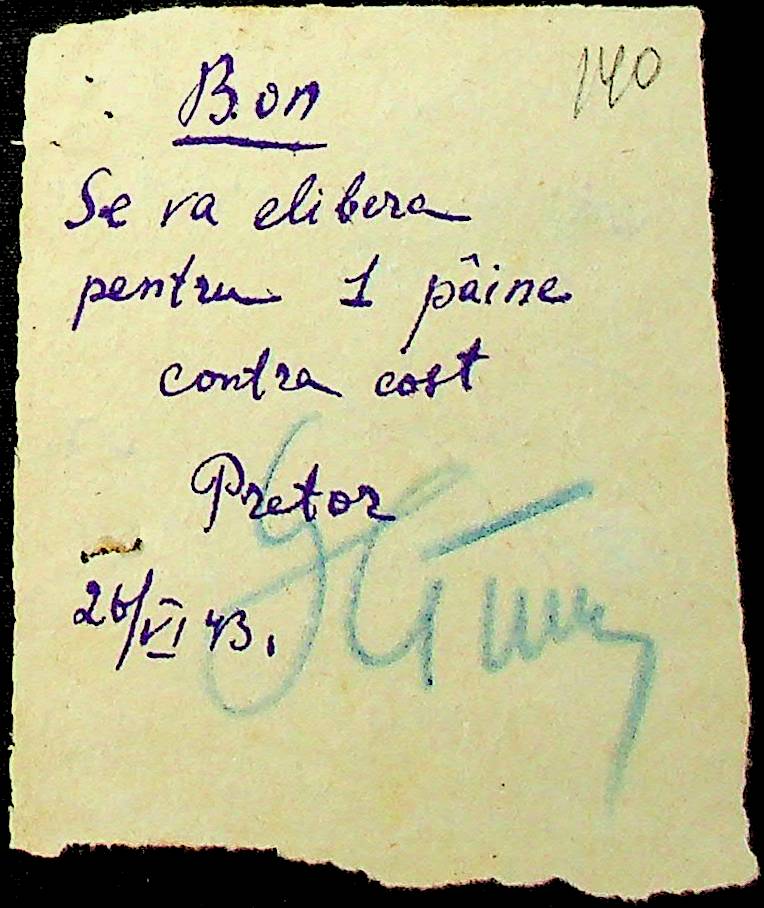 140
Bon
Se va elibera
pentru 1 pâine
contra cost
Pretor
26/VI 43.